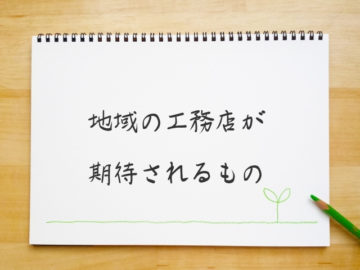 地域の工務店が
期待されるもの